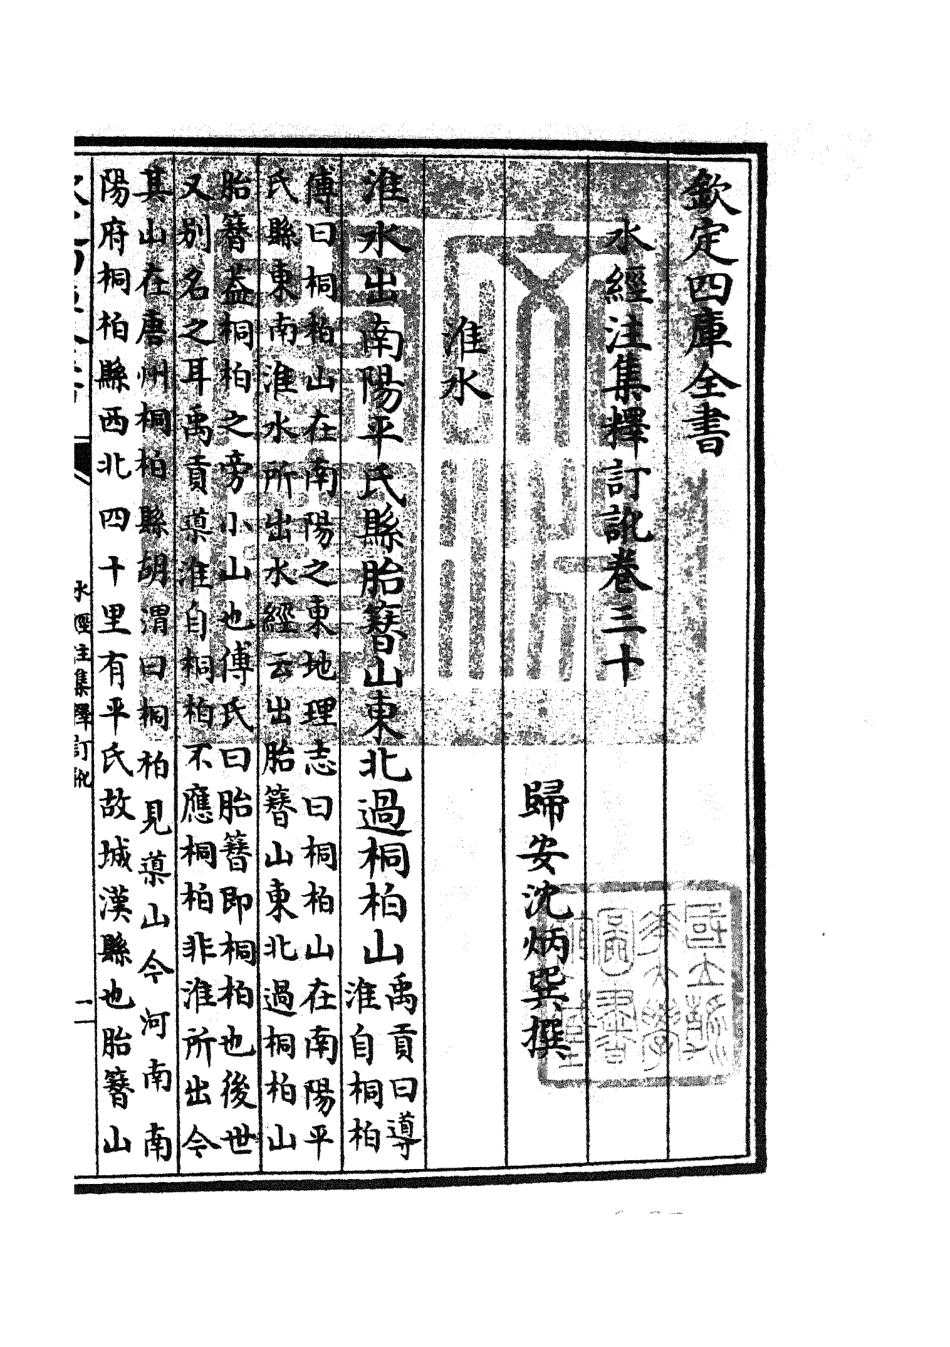 欽定四庫全書
水經注集釋訂訛卷三十
歸安沈炳巽撰
淮水
淮水出南陽平氏縣胎簪山東北過桐柏山
禹貢曰導
淮自桐柏
傅曰桐柏山在南陽之東地理志曰桐柏山在南陽平
氏縣東南淮水所出水經云出胎簪山東北過桐柏山
胎簪葢桐柏之旁小山也傅氏曰胎簪即桐柏也後世
又别名之耳禹貢導淮自桐柏不應桐柏非淮所出今
其山在唐州桐柏縣胡渭曰桐柏見導山今河南南
陽府桐柏縣西北四十里有平氏故城漢縣也胎簪山
水經注集釋訂訛
一